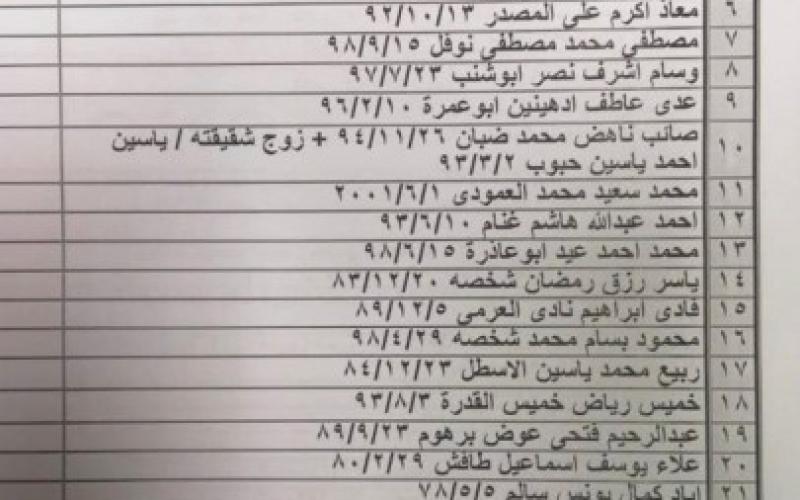 ٦ معاذ اكرم على المصدر ٩٢/١٠/١٣
٧ مصطفى محمد مصطفى نوفل ٩٨/٩/١٥
٨ وسام اشرف نصر ابوشنب ٩٧/٧/٢٣
٩ عدى عاطف ادهينين ابوعمرة ٩٦/٢/١٠
١٠ صائب ناهض محمد ضبان ٩٤/١١/٢٦ + زوج شقيقته / ياسين
احمد ياسين حبوب ٩٣/٣/٢
١١ محمد سعيد محمد العمودى ٢٠٠١/٦/١
١٢ احمد عبدالله هاشم غنام ٩٣/٦/١٠
١٣ محمد احمد عيد ابوعاذرة ٩٨/٦/١٥
١٤ ياسر رزق رمضان شخصه ٨٣/١٢/٢٠
١٥ فادى ابراهيم نادى العرمى ٨٩/١٢/٥
١٦ محمود بسام محمد شخصه ٩٨/٤/٢٩
١٧ ربيع محمد ياسين الاسطل ٨٤/١٢/٢٣
١٨ خميس رياض خميس القدرة ٩٣/٨/٣
١٩ عبدالرحيم فتحى عوض برهوم ٨٩/٩/٢٣
٢٠ علاء يوسف اسماعيل طافش ٨٠/٢/٢٩
٢١ اياد كمال يونس سالم ٧٨/٥/٥